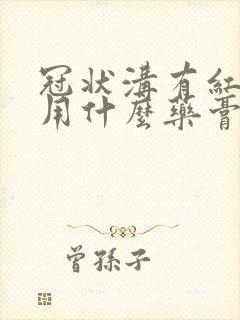 冠状溝有紅
用什麼藥膏
曾孫子